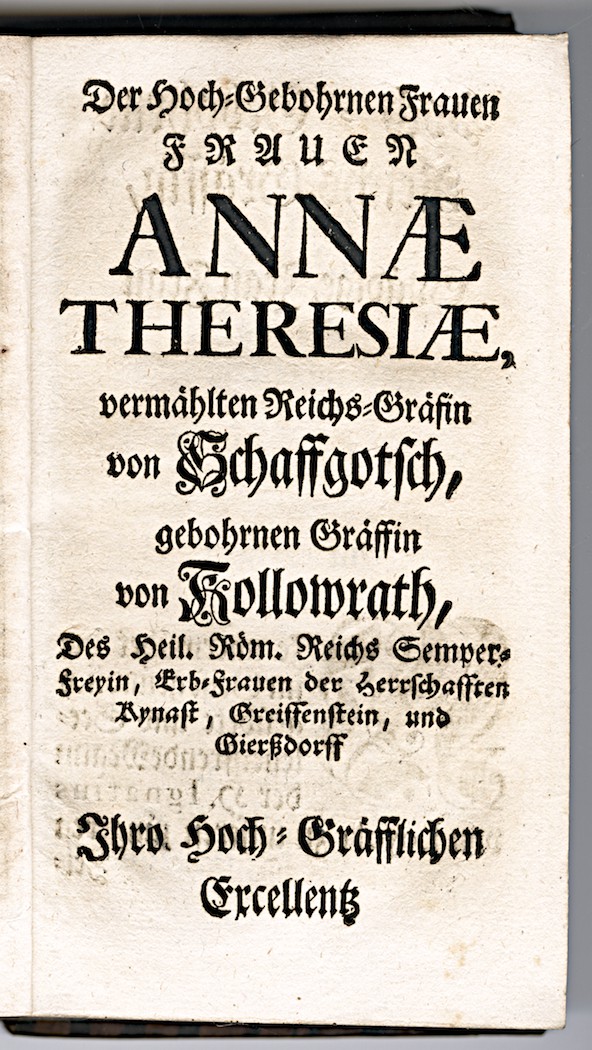 Der Hoch-Gebohrnen Frauen
FRAUEN
ANNÆ
THERESIÆ,
vermählten Reichs-Gräfin
von Schaffgotsch,
gebohrnen Gräffin
von Kollowrath,
Des Heil. Röm. Reichs Semper-
Freyin, Erb-Frauen der Herrschafften
Kynast, Greiffenstein, und
Gierßdorff
Ihro Hoch-Gräfflichen
Excellentz